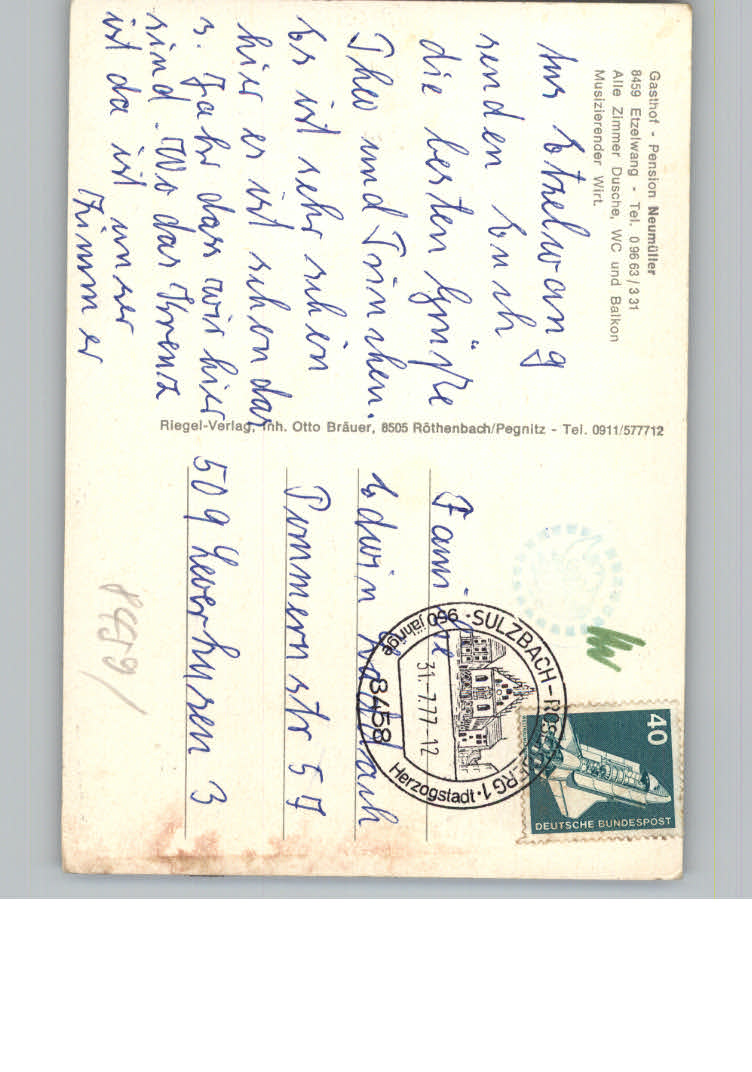 Gasthof - Pension Neumüller
8459 Etzelwang - Tel. 0 96 63 / 3 31
Alle Zimmer Dusche, WC und Balkon
Musizierender Wirt.
Aus Etzelwang
senden Euch
die besten Grüße
Theo und Trinchen.
Es ist sehr schön
hier es ist schon das
3. Jahr dass wir hier
sind. Wo das Kreuz
ist da ist unser
Zimmer
Riegel-Verlag, Inh. Otto Bräuer, 8505 Röthenbach/Pegnitz - Tel. 0911/577712
40
DEUTSCHE BUNDESPOST
SULZBACH-ROSENBERG 1
950 jährige
Herzogstadt
31.-7.77-12
8458
Familie
Edwin
Pommernstr 57
509 Leverkusen 3
8459/